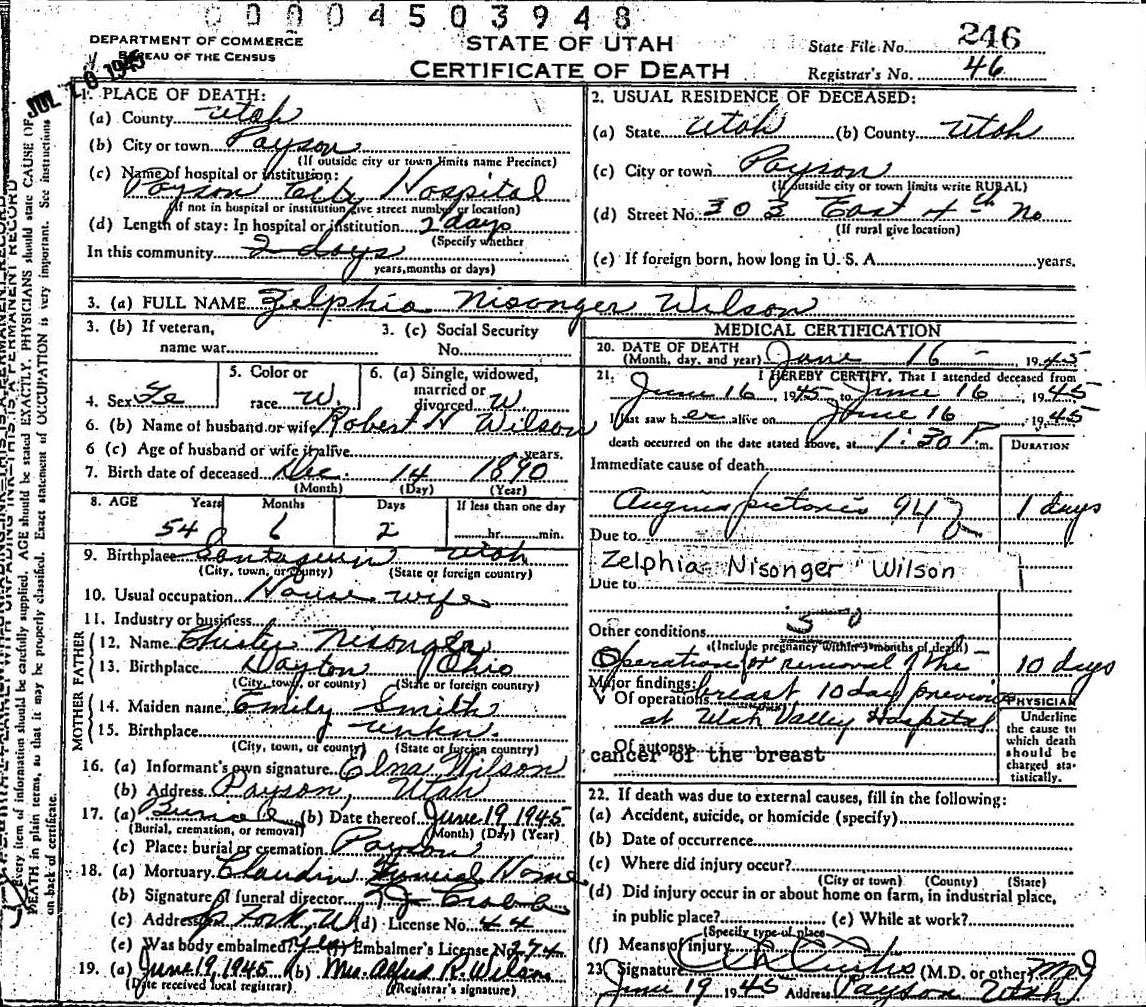 0 0 0 4 5 0 3 9 4 8
DEPARTMENT OF COMMERCE
BUREAU OF THE CENSUS
STATE OF UTAH
CERTIFICATE OF DEATH
State File No. 246
Registrar's No. 46
JUL 10 1945
1. PLACE OF DEATH:
(a) County Utah
(b) City or town Payson
(If outside city or town limits name Precinct)
(c) Name of hospital or institution:
Payson City Hospital
(If not in hospital or institution give street number or location)
(d) Length of stay: In hospital or institution 2 days
(Specify whether
In this community 2 days
years, months or days)
2. USUAL RESIDENCE OF DECEASED:
(a) State Utah (b) County Utah
(c) City or town Payson
(If outside city or town limits write RURAL)
(d) Street No. 303 East 4th No
(If rural give location)
(e) If foreign born, how long in U. S. A. years.
3. (a) FULL NAME Zelphia Nisonger Wilson
3. (b) If veteran,
name war
3. (c) Social Security
No.
4. Sex Fe
5. Color or
race W.
6. (a) Single, widowed,
married or
divorced W
6. (b) Name of husband or wife Robert N Wilson
6 (c) Age of husband or wife if alive years.
7. Birth date of deceased Dec. 14 1890
(Month) (Day) (Year)
8. AGE Years Months Days If less than one day
54 6 2 hr. min.
9. Birthplace Santaquin Utah
(City, town, or county) (State or foreign country)
10. Usual occupation House wife
11. Industry or business
FATHER
12. Name Nisonger
13. Birthplace Dayton Ohio
(City, town, or county) (State or foreign country)
MOTHER
14. Maiden name Emily Smith
15. Birthplace unkn.
(City, town, or county) (State or foreign country)
16. (a) Informant's own signature Elna Wilson
(b) Address Payson, Utah
17. (a) Burial (b) Date thereof June 19, 1945
(Burial, cremation, or removal) (Month) (Day) (Year)
(c) Place: burial or cremation Payson
18. (a) Mortuary Claudin Funeral Home
(b) Signature of funeral director
(c) Address Sp Fork, U (d) License No. 44
(e) Was body embalmed? yes Embalmer's License No. 274
19. (a) June 19, 1945 (b) Mrs. R. Wilson
(Date received local registrar) (Registrar's signature)
MEDICAL CERTIFICATION
20. DATE OF DEATH
(Month, day, and year) June 16 - 1945
21. I HEREBY CERTIFY, That I attended deceased from
June 16 1945 to June 16 1945
I last saw her alive on June 16 1945
death occurred on the date stated above, at 1:30 P. m.
DURATION
Immediate cause of death
Angina pectoris 94 1 days
Due to
Zelphia Nisonger Wilson
Due to
50
Other conditions
(Include pregnancy within 3 months of death)
Operation for removal of the 10 days
Major findings:
Of operations breast 10 day previous
at Utah Valley Hospital
Of autopsy
cancer of the breast
PHYSICIAN
Underline
the cause to
which death
should be
charged sta-
tistically.
22. If death was due to external causes, fill in the following:
(a) Accident, suicide, or homicide (specify)
(b) Date of occurrence
(c) Where did injury occur?
(City or town) (County) (State)
(d) Did injury occur in or about home on farm, in industrial place,
in public place? (e) While at work?
(Specify type of place
(f) Means of injury
23. Signature Curtis (M.D. or other) MD
June 19 1945 Address Payson Utah